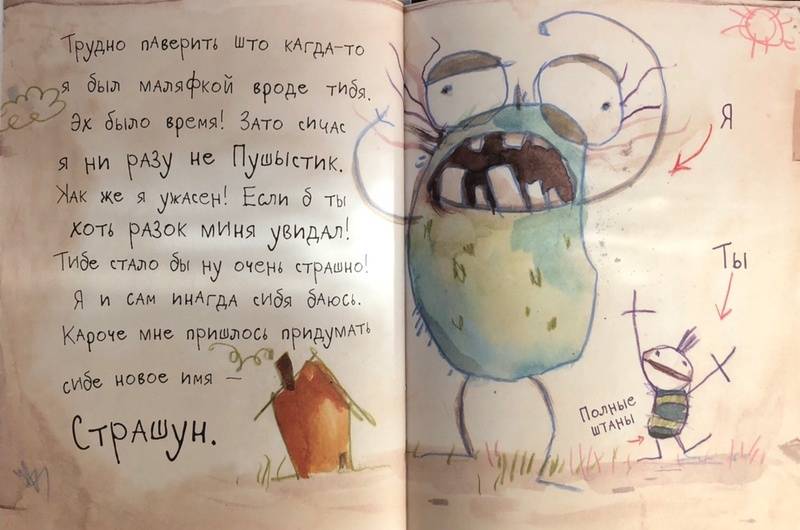 Трудно паверить што кагда-то
я был маляфкой вроде тибя.
Эх было время! Зато сичас
я ни разу не Пушыстик.
Как же я ужасен! Если б ты
хоть разок миня увидал!
Тибе стало бы ну очень страшно!
Я и сам инагда сибя баюсь.
Кароче мне пришлось придумать
сибе новое имя —
Страшун.
Я
Ты
Полные
штаны